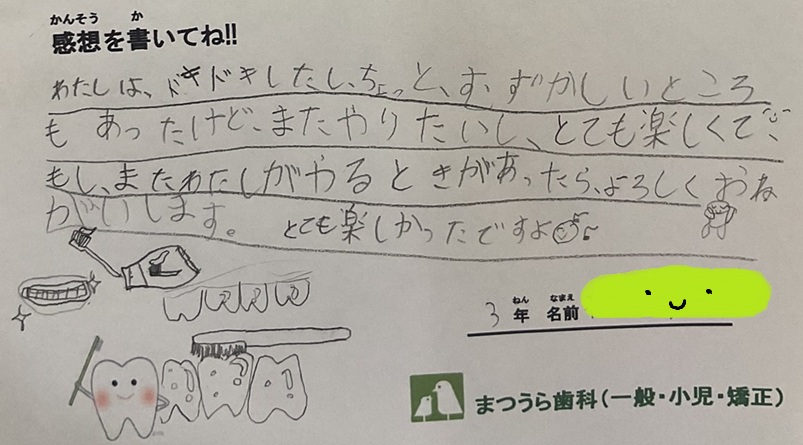 かんそう か
感想を書いてね!!
わたしは、ドキドキしたし、ちょっと、むずかしいところ
もあったけど、またやりたいし、とても楽しくて
もし、またわたしがやるときがあったら、よろしくおね
がいします。 とても楽しかったですよ
ねん なまえ
3年 名前
まつうら歯科(一般・小児・矯正)